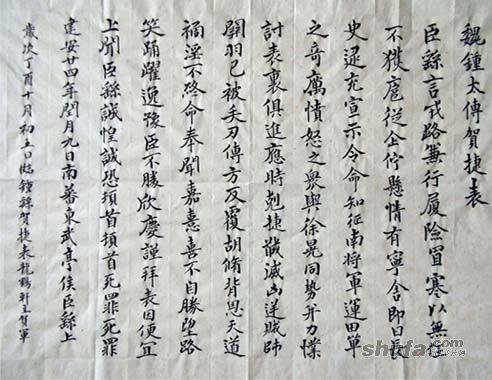 魏鍾太傅賀捷表
臣繇言戎路兼行履險冒寒以無任
不獲扈從企佇懸情有寧舍即日長
史逯充宣示令命知征南將軍運田單
之奇厲憤怒之衆與徐晃同勢并力撲
討表裏俱進應時剋捷馘滅凶逆賊師
關羽已被矢刃傅方反覆胡脩背恩天道
禍淫不終命奉聞嘉憙喜不自勝望路
笑踊躍逸豫臣不勝欣慶謹拜表因便宜
上聞臣繇誠惶誠恐頓首頓首死罪死罪
建安廿四年閏月九日南蕃東武亭侯臣繇上
歲次丁酉十月初五日臨鍾繇賀捷表龍鶴軒主賀軍